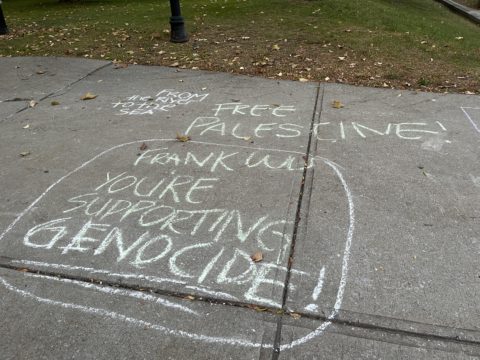 FROM
the RIVER
TO THE
SEA
FREE
PALESCINE!
FRANK WU
YOU'RE
SUPPORTING
GENOCIDE!